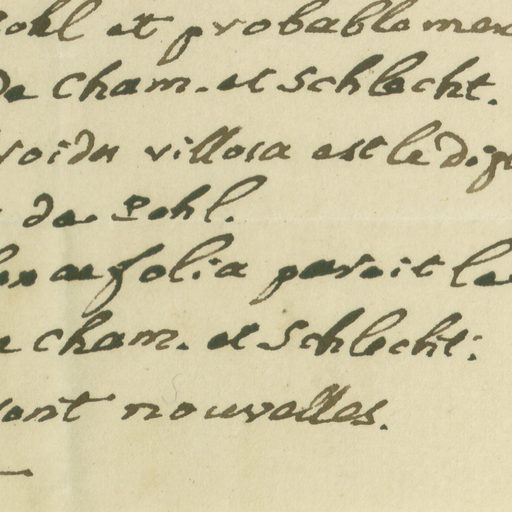 Pohl et probablemen
de Cham. et Schlecht.
roidea villosa est le Dip
de Pohl.
folia paroit le
e Cham. et Schlecht:
sont nouvelles.